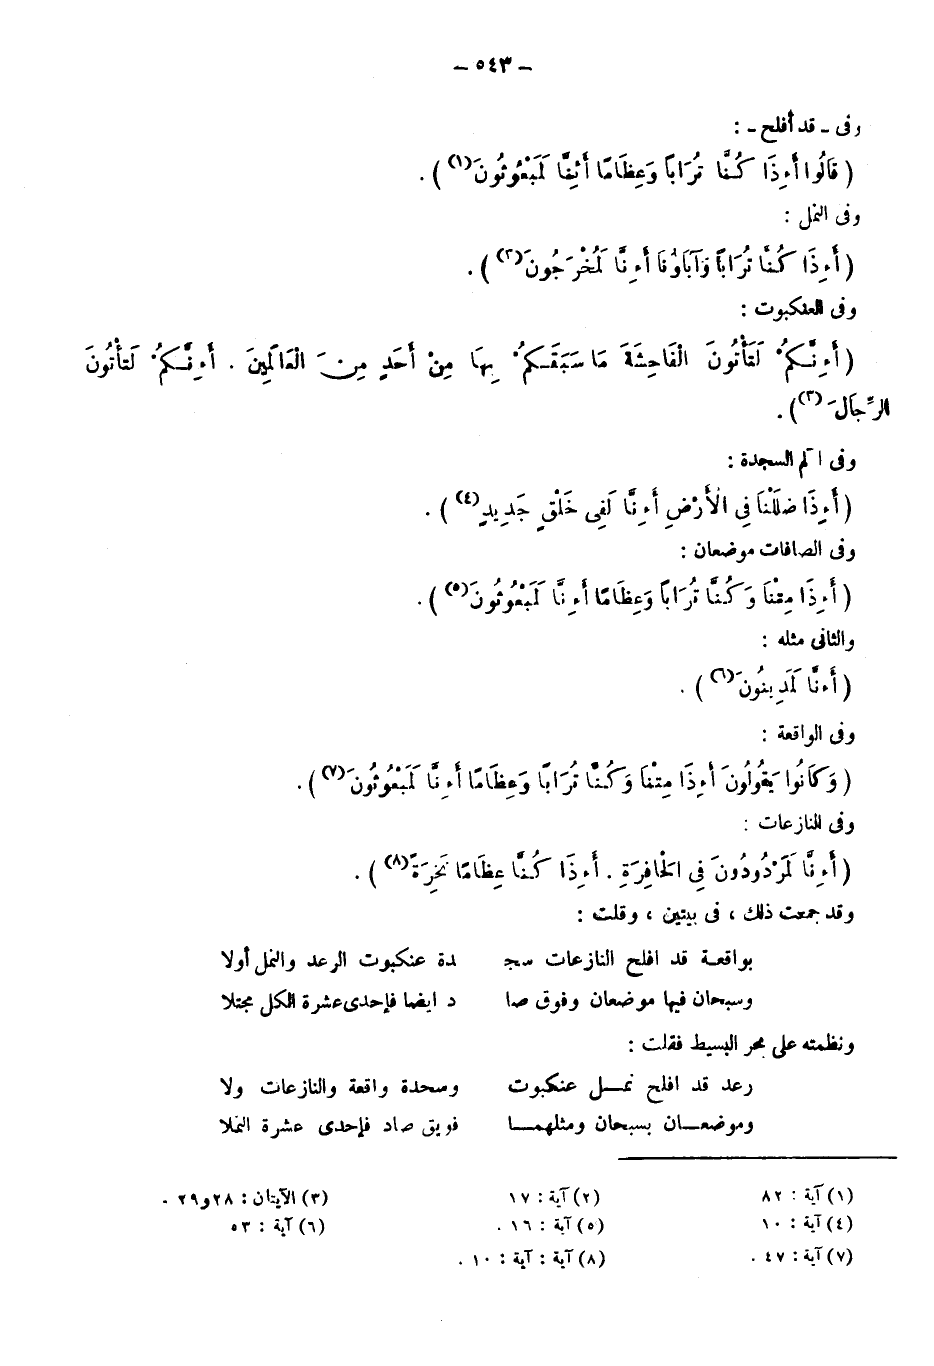 – ٥٤٣ –
وفى ـ قد أفلح ـ :
( قَالُوا أَءِذَا كُنَّا تُرَاباً وَعِظَامًا أَئِنَّا لَمَبْعُوثُونَ(١) ) .
وفى النمل :
( أَءِذَا كُنَّا تُرَاباً وَآبَاؤُنَا أَءِنَّا لَمُخْرَجُونَ(٢) ) .
وفى العنكبوت :
( أَءِنَّكُمْ لَتَأْتُونَ الْفَاحِشَةَ مَا سَبَقَكُمْ بِهَا مِنْ أَحَدٍ مِنَ الْعَالَمِينَ . أَءِنَّكُمْ لَتَأْتُونَ
الرِّجَالَ(٣) ) .
وفى الم السجدة :
( أَءِذَا ضَلَلْنَا فِى الْأَرْضِ أَءِنَّا لَفِى خَلْقٍ جَدِيدٍ(٤) ) .
وفى الصافات موضعان :
( أَءِذَا مِتْنَا وَكُنَّا تُرَاباً وَعِظَامًا أَءِنَّا لَمَبْعُوثُونَ(٥) ) .
والثانى مثله :
( أَءِنَّا لَمَدِينُونَ(٦) ) .
وفى الواقعة :
( وَكَانُوا يَقُولُونَ أَءِذَا مِتْنَا وَكُنَّا تُرَابًا وَعِظَامًا أَءِنَّا لَمَبْعُوثُونَ(٧) ) .
وفى النازعات :
( أَءِنَّا لَمَرْدُودُونَ فِى الْحَافِرَةِ . أَءِذَا كُنَّا عِظَامًا نَخِرَةً(٨) ) .
وقد جمعت ذلك ، فى بيتين ، وقلت :
بواقعة قد افلح النازعات سجـ دة عنكبوت الرعد والنمل أولا
وسبحان فيها موضعان وفوق صا د ايضا فإحدى عشرة الكل مجتلا
ونظمته على بحر البسيط فقلت :
رعد قد افلح نمـل عنكبوت وسحدة واقعة والنازعات ولا
وموضعـان بسبحان ومثلهمـا فويق صاد فإحدى عشرة النملا
(١) آية : ٨٢ (٢) آية : ١٧ (٣) الآيتان : ٢٨و٢٩ .
(٤) آية : ١٠ (٥) آية : ١٦ . (٦) آية : ٥٣
(٧) آية : ٤٧ . (٨) آية : آية : ١٠ .